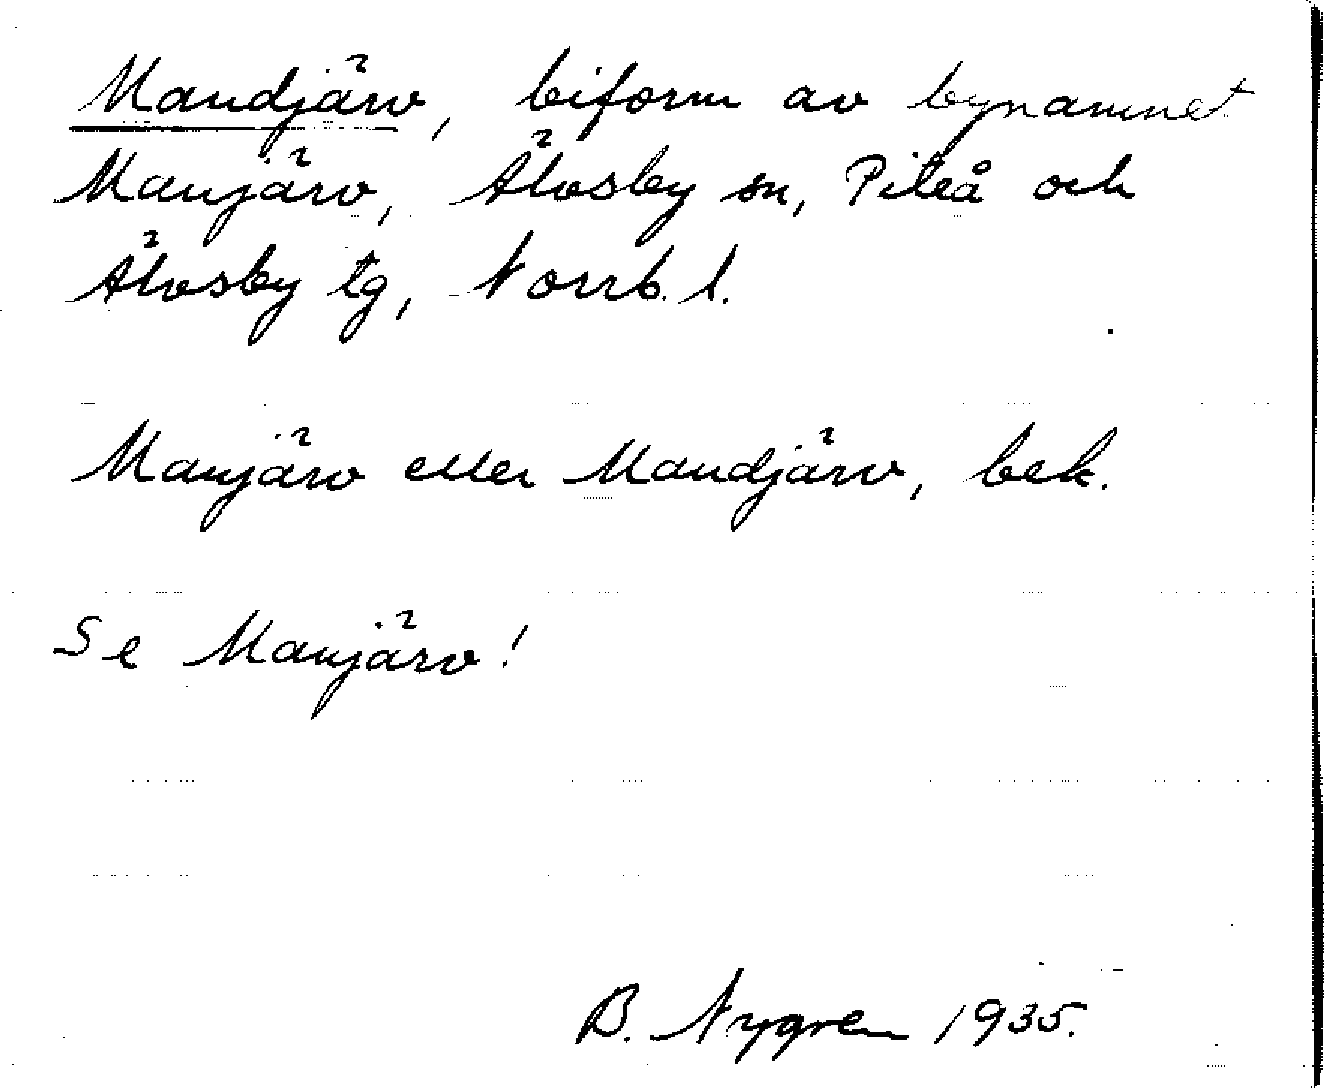 Mandjärv, biform av bynamnet
Manjärv, Älvsby sn, Piteå och
Älvsby tg, Norrb. l.
Manjärv eller Mandjärv, bek.
Se Manjärv!
B. Nygren 1935.